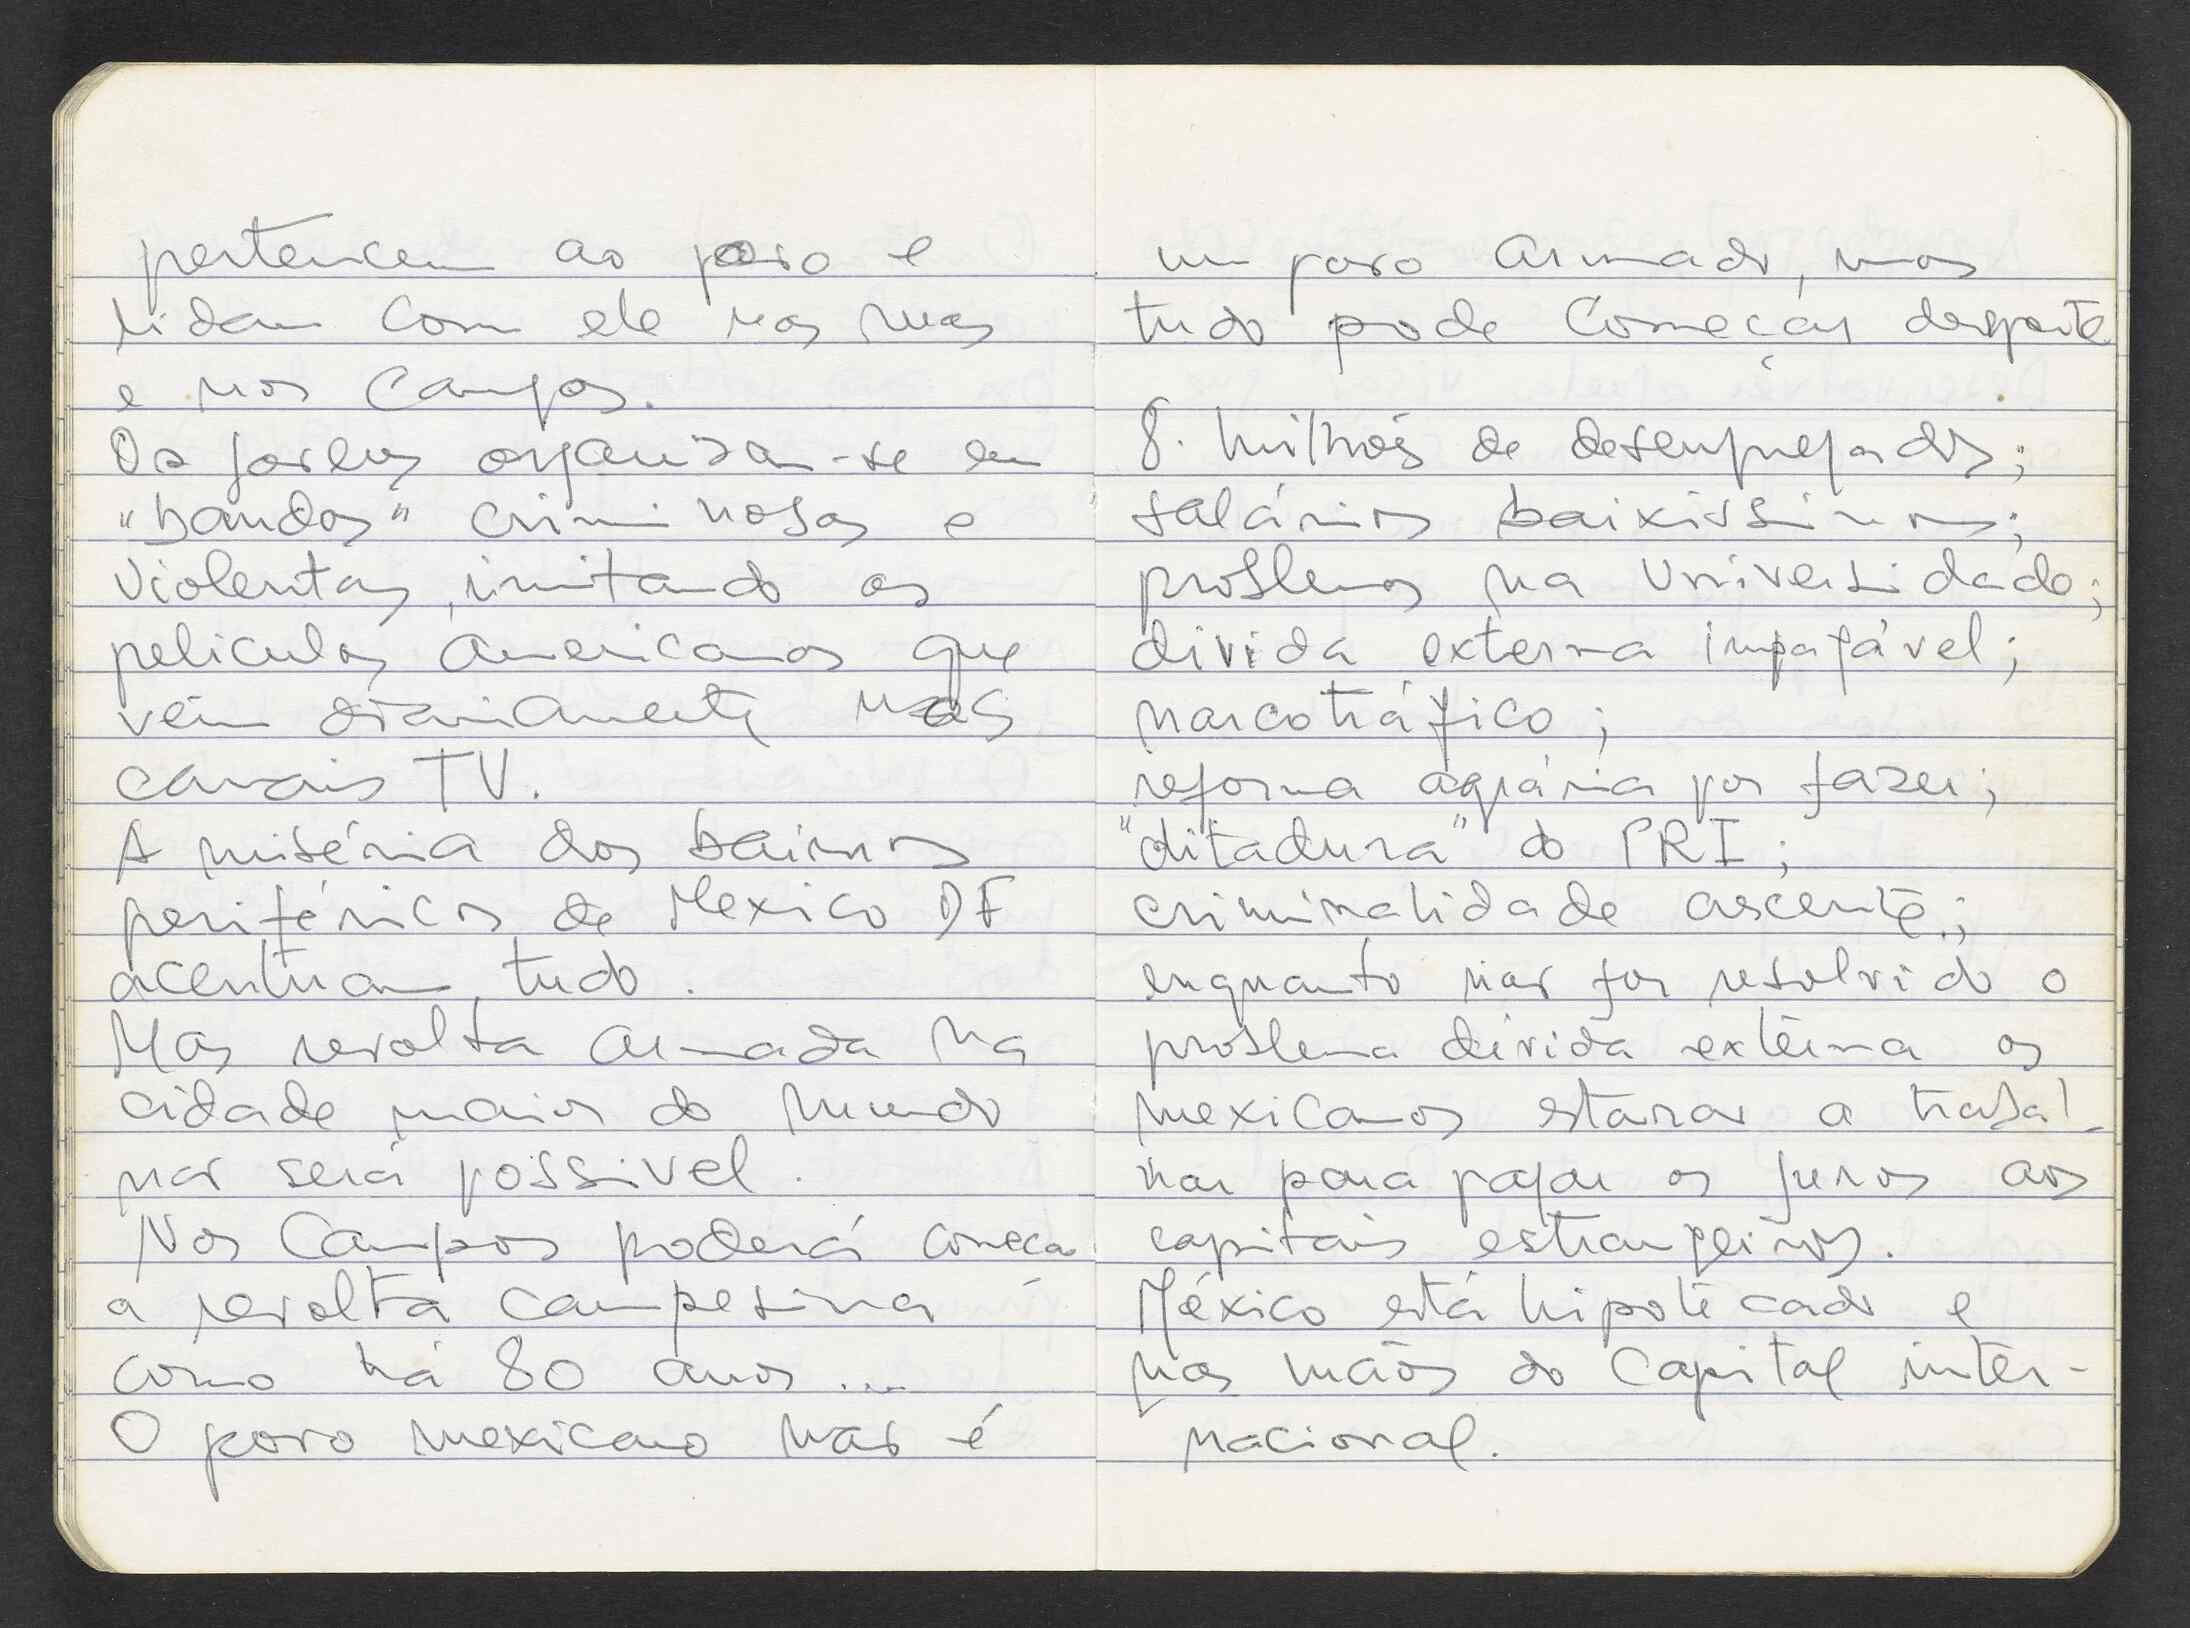 pertencem ao povo e
lidam com ele nas ruas
e nos campos.
Os jovens organizam-se em
"bandos" criminosos e
violentos, imitando as
peliculas americanas que
vêm diariamente nos
canais TV.
A miséria dos bairros
periféricos de Mexico DF
acentuam tudo.
Mas revolta armada na
cidade maior do mundo
não será possivel.
Nos Campos poderá começar
a revolta campesina
como há 80 anos...
O povo mexicano não é
um povo armado, mas
tudo pode começar
8. milhões de desempregados;
salários baixissimos;
problemas na Universidade;
divida externa impagável;
narcotráfico;
reforma agrária por fazer;
"ditadura" do PRI;
criminalidade ascente;
enquanto não for resolvido o
problema divida externa os
mexicanos estarão a trabal-
har para pagar os juros aos
capitais estrangeiros.
México está hipotecado e
nas mãos do Capital inter-
nacional.